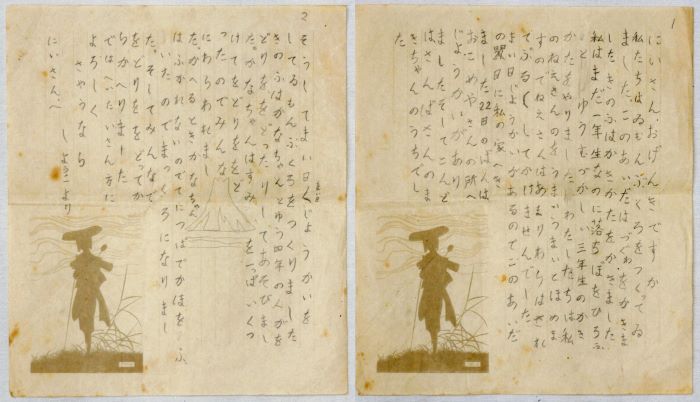 1
にいさん、おげんきですか
私たちはゐもんぶくろをつくつてゐ
ました。このあいだはづがをかきま
したきのふはかきかたをかきました。
私はまだ一年生なのに落ちほをひろふ
とゆうむづかしい三年生のかき
かたをやりました。わたしたちは私
のねえさんのをうまいうまいとほめま
すのでねえさんはあまりわらはせられ
てふるくしてかけませんでした。
まい日じようかいがあるのでこのあいだ
の曜日に私の家へき
ました22日のばんは
おこめやさんの所へ
じようかいがあり
ましたそしてこんど
はさんのま
きちやんのうちでし
た
2
そうしてまい日〱じようかいを
してゐもんぶくろをつくりました
きのふはかなちやんとゆう四年の人がを
どりををどつたりしてあそびまし
た。かなちやんはすみを一つぱいくつ
けてをどりををど
つたのでみんな
にわらわれまし
た。かへるときかなちやん
はふかれないのでてにつばでかほをふ
いたのでまつくろになりまし
た。そしてみんなで
をどりををどてか
らかへりました
ではへいたいさん方に
よろしく
さやうなら
より
にいさんへ